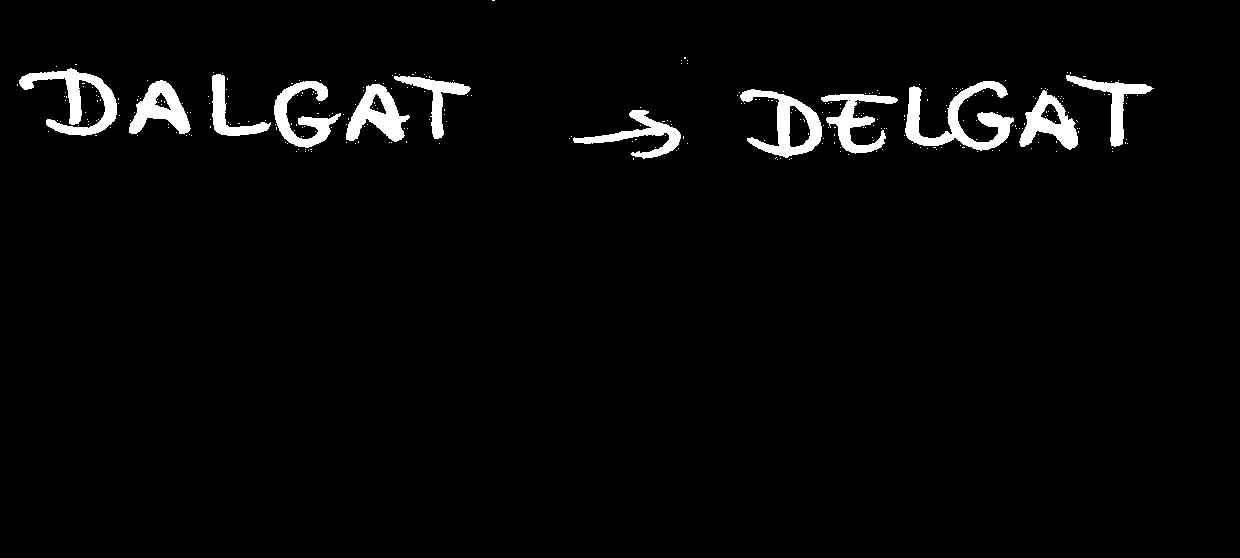 DALGAT → DELGAT